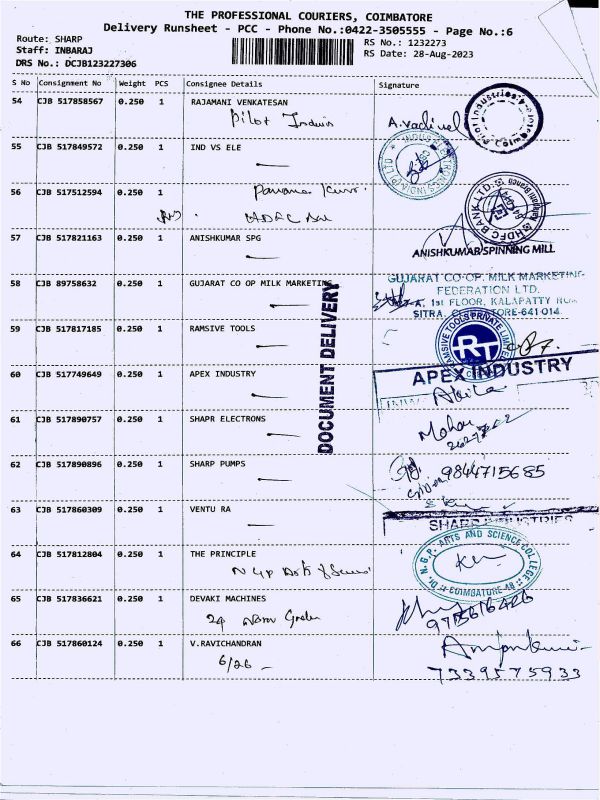 THE PROFESSIONAL COURIERS, COIMBATORE
Delivery Runsheet - PCC - Phone No.:0422-3505555 - Page No.:6
Route: SHARP
RS No.: 1232273
Staff: INBARAJ
RS Date: 28-Aug-2023
DRS No.: DCJB123227306
S No Consignment No Weight PCS Consignee Details Signature
54 CJB 517858567 0.250 1 RAJAMANI VENKATESAN
Pilot A.Vadivel
55 CJB 517849572 0.250 1 IND VS ELE
56 CJB 517512594 0.250 1
HDFC
HDFC BANK LTD.
57 CJB 517821163 0.250 1 ANISHKUMAR SPG
ANISHKUMAR SPINNING MILL
58 CJB 89758632 0.250 1 GUJARAT CO OP MILK MARKETING
GUJARAT CO-OP. MILK MARKETING
FEDERATION LTD.
1st FLOOR, KALAPATTY
SITRA, 641 014.
DOCUMENT DELIVERY
59 CJB 517817185 0.250 1 RAMSIVE TOOLS
RAMSIVE TOOLS PRIVATE LIMITED
RT
60 CJB 517749649 0.250 1 APEX INDUSTRY
APEX INDUSTRY
61 CJB 517890757 0.250 1 SHAPR ELECTRONS
Mohan
62 CJB 517890896 0.250 1 SHARP PUMPS
9844715685
63 CJB 517860309 0.250 1 VENTU RA
SHARP INDUSTRIES
64 CJB 517812804 0.250 1 THE PRINCIPLE
Dr. N.G.P. ARTS AND SCIENCE COLLEGE
COIMBATORE-48
65 CJB 517836621 0.250 1 DEVAKI MACHINES
9715616426
66 CJB 517860124 0.250 1 V.RAVICHANDRAN
6/26
7339575933